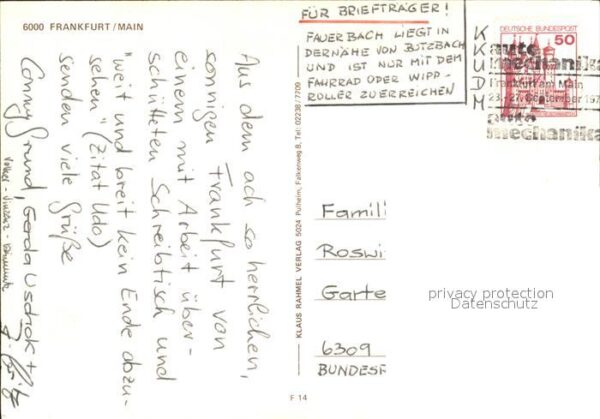 6000 FRANKFURT/MAIN
Aus dem ach so herrlichen,
sonnigen Frankfurt von
einem mit Arbeit über-
schütteten Schreibtisch und
"weit und breit kein Ende dazu-
sehen" (Zitat Udo)
senden viele Grüße
Conny Grund, Gerda
KLAUS RAHMEL VERLAG 5024 Pulheim, Falkenweg 8, Tel: 02238/7709
FÜR BRIEFTRÄGER!
FAUERBACH LIEGT IN
DERNÄHE VON BUTZBACH
UND IST NUR MIT DEM
FAHRRAD ODER WIPP-
ROLLER ZU ERREICHEN
DEUTSCHE BUNDESPOST
50
auto
mechanika
Frankfurt am Main
23.-27. September 197
auto
mechanika
Famili
Roswi
Garte
6309
BUNDESF
privacy protection
Datenschutz
F 14